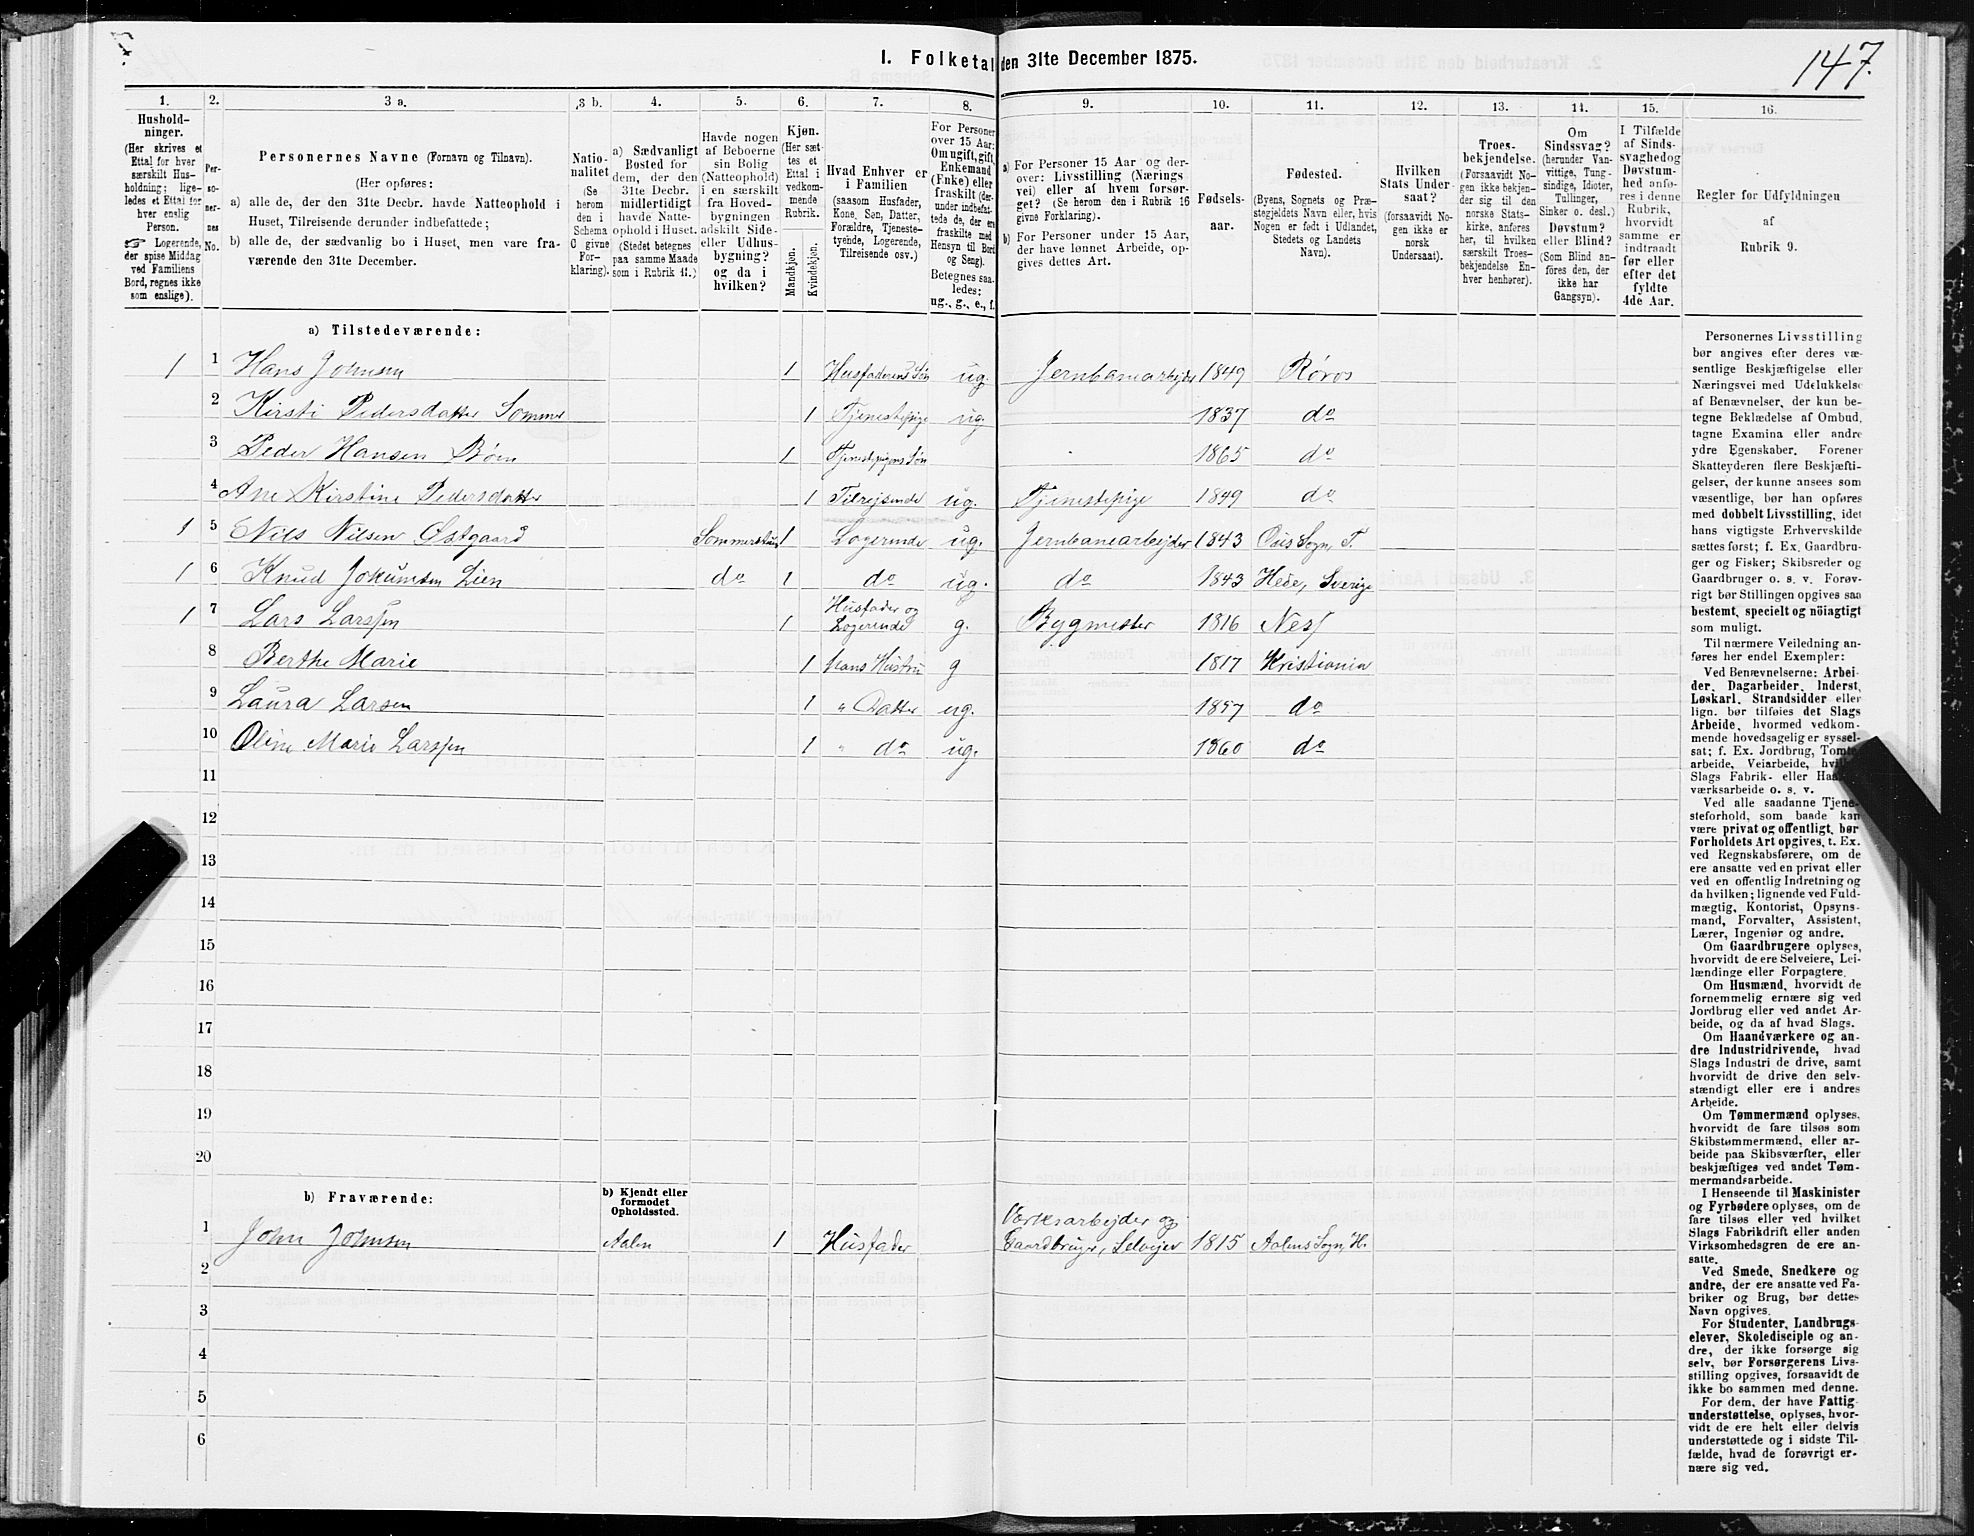 I. Folketal den 31te December 1875.
147.
1. 2. 3 a. 3 b. 4. 5. 6. 7. 8. 9. 10. 11. 12. 13. 14. 15. 16.
Hushold-
ninger.
(Her skrives et
Ettal for hver
særskilt Hus-
holdning; lige-
ledes et Ettal for
hver enslig
Person.
☞ Logerende,
der spise Middag
ved Familiens
Bord, regnes ikke
som enslige).
Per-
so-
ner-
nes
No.
Personernes Navne (Fornavn og Tilnavn).
(Her opføres:
a) alle de, der den 31te Decbr. havde Natteophold i
Huset, Tilreisende derunder indbefattede;
b) alle de, der sædvanlig bo i Huset, men vare fra-
værende den 31te December.
Natio-
nalitet
(Se
herom
den i
Schema
C givne
For-
klaring).
a) Sædvanligt
Bosted for
dem, der den
31te Decbr.
midlertidigt
havde Natte-
ophold i Huset.
(Stedet betegnes
paa samme Maade
som i Rubrik 11.)
Havde nogen
af Beboerne
sin Bolig
(Natteophold)
i en særskilt
fra Hoved-
bygningen
adskilt Side-
eller Udhus-
bygning?
og da i
hvilken?
Kjøn.
(Her sæt-
tes et
Ettal i
vedkom-
mende
Rubrik.
Mandkjøn.
Kvindekjøn.
Hvad Enhver er
i Familien
(saasom Husfader,
Kone, Søn, Datter,
Forældre, Tjeneste-
tyende, Logerende,
Tilreisende osv.)
For Personer
over 15 Aar:
Om ugift, gift,
Enkemand
(Enke) eller
fraskilt (der-
under indbefat-
tede de, der ere
fraskilte med
Hensyn til Bord
og Seng).
Betegnes saa-
ledes:
ug., g., e., f.
a) For Personer 15 Aar og der-
over: Livsstilling (Nærings-
vei) eller af hvem forsør-
get? (Se herom den i Rubrik 16
givne Forklaring).
b) For Personer under 15 Aar,
der have lønnet Arbeide, op-
gives dettes Art.
Fødsels-
aar.
Fødested.
(Byens, Sognets og Præ-
stegjeldets Navn eller, hvis
Nogen er født i Udlandet,
Stedets og Landets
Navn).
Hvilken
Stats Under-
saat?
(forsaavidt No-
gen ikke er
norsk
Undersaat).
Troes-
bekjendelse.
(Forsaavidt No-
gen ikke bekjen-
der sig til den
norske Stats-
kirke, anføres
her, til hvilken
særskilt Troes-
bekjendelse En-
hver henhører).
Om
Sindssvag?
(herunder Van-
vittige, Tung-
sindige, Idioter,
Tullinger,
Sinker o. desl.)
Døvstum?
eller Blind?
(Som Blind an-
føres den, der
ikke har
Gangsyn).
I Tilfælde
af Sinds-
svaghed og
Døvstum-
hed anfø-
res i denne
Rubrik,
hvorvidt
samme er
indtraadt
før eller
efter det
fyldte
4de Aar.
Regler for Udfyldningen
af
Rubrik 9.
a) Tilstedeværende:
1 1 Hans Johnsen 1 Husfaderens Søn ug. Jernbanearbejder 1849 Røros
2 Kirsti Pedersdatter Sommer 1 Tjenestepige ug 1837 do
3 Peder Hansen Böen 1 Tjenestepigens Søn 1865 do
4 Ane Kirstine Pedersdatter 1 Tilrejsende ug. Tjenestepige 1849 do
1 5 Nils Nilsen Østgaard 1 Logerende ug. Jernbanearbejder 1843 Sogn, T.
1 6 Knud Jokumsen Lien do 1 do ug. do 1843 Hede, Sverige
1 7 Lars Larssen 1 Husfader og
Logerende g. Bygmester 1816 Ness
8 Berthe Marie 1 Hans Hustru g 1817 Kristiania
9 Laura Larsen 1 " Datter ug. 1857 do
10 Oline Marie Larssen 1 " do ug. 1860 do
11
12
13
14
15
16
17
18
19
20
b) Fraværende:
b) Kjendt eller
formodet
Opholdssted.
1 John Johnsen Aalen 1 Husfader Værksarbejder og
Gaardbruger, Selvejer 1815 Aalens Sogn, H.
2
3
4
5
6
Personernes Livsstilling
bør angives efter deres væ-
sentlige Beskjæftigelse eller
Næringsvei med Udelukkelse
af Benævnelser, der kun be-
tegne Beklædelse af Ombud,
tagne Examina eller andre
ydre Egenskaber. Forener
Skatteyderen flere Beskjæfti-
gelser, der kunne ansees som
væsentlige, bør han opføres
med dobbelt Livsstilling, idet
hans vigtigste Erhvervskilde
sættes først; f. Ex. Gaardbru-
ger og Fisker; Skibsreder og
Gaardbruger o. s. v. Forøv-
rigt bør Stillingen opgives saa
bestemt, specielt og nöiagtigt
som muligt.
Til nærmere Veiledning an-
føres her endel Exempler:
Ved Benævnelserne: Arbei-
der, Dagarbeider, Inderst,
Løskarl, Strandsidder eller
lign. bør tilføies det Slags
Arbeide, hvormed vedkom-
mende hovedsagelig er syssel-
sat; f. Ex. Jordbrug, Tomte-
arbeide, Veiarbeide, hvilket
Slags Fabrik- eller Haand-
værksarbeide o. s. v.
Ved alle saadanne Tjene-
steforhold, som baade kan
være privat og offentligt, bør
Forholdets Art opgives, t. Ex.
ved Regnskabsførere, om de
ere ansatte ved en privat eller
ved en offentlig Indretning og
da hvilken; lignende ved Fuld-
mægtig, Kontorist, Opsyns-
mand, Forvalter, Assistent,
Lærer, Ingeniør og andre.
Om Gaardbrugere oplyses,
hvorvidt de ere Selveiere, Lei-
lændinge eller Forpagtere.
Om Husmænd, hvorvidt de
fornemmelig ernære sig ved
Jordbrug eller ved andet Ar-
beide, og da af hvad Slags.
Om Haandværkere og an-
dre Industridrivende, hvad
Slags Industri de drive, samt
hvorvidt de drive den selv-
stændigt eller ere i andres
Arbeide.
Om Tømmermænd oplyses,
hvorvidt de fare tilsøs som
Skibstømmermænd, eller ar-
beide paa Skibsværfter, eller
beskjæftiges ved andet Tøm-
mermandsarbeide.
I Henseende til Maskinister
og Fyrbødere oplyses, om de
fare tilsøs eller ved hvilket
Slags Fabrikdrift eller anden
Virksomhedsgren de ere an-
satte.
Ved Smede, Snedkere og
andre, der ere ansatte ved Fa-
briker og Brug, bør dettes
Navn opgives.
For Studenter, Landbrugs-
elever, Skoledisciple og an-
dre, der ikke forsørge sig
selv, bør Forsørgerens Livs-
stilling opgives, forsaavidt de
ikke bo sammen med denne.
For dem, der have Fattig-
understøttelse, oplyses, hvor-
vidt de ere helt eller delvis
understøttede og i sidste Til-
fælde, hvad de forøvrigt er-
nære sig ved.